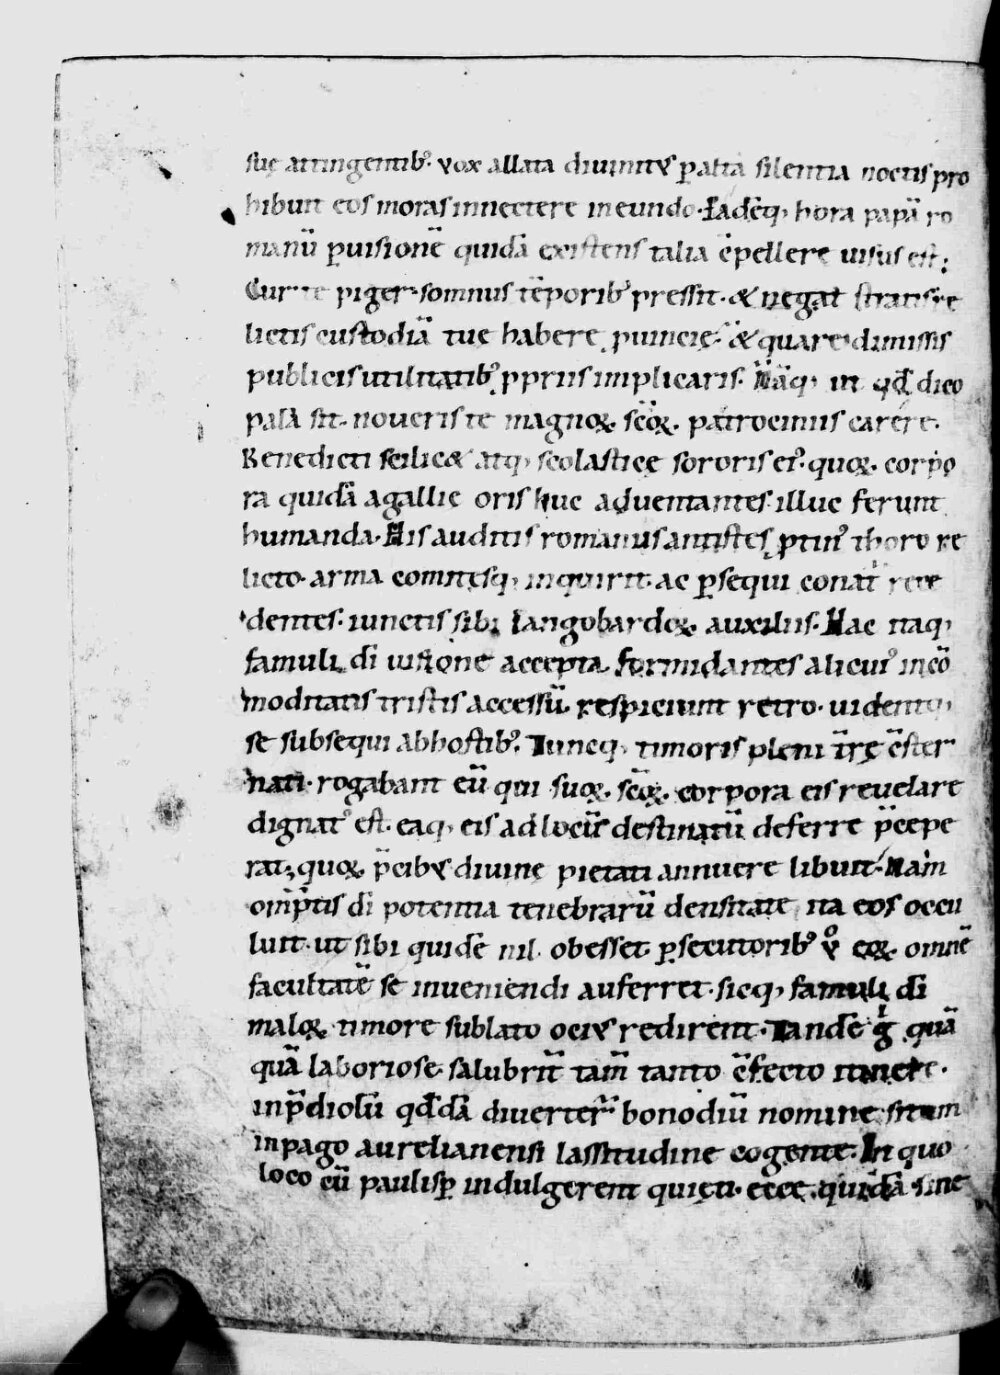 suę attingentib᷒. vox allata divinitꝰ p̲ alta silentia noctis pro
hibuit eos moras innectere in eundo. Eadēq; hora papā ro
manū p̲ uisionē quidā existens talia cōpellere uisus est:
Cur te piger somnus tēporib᷒ pressit. & negat stratis re
lictis custodiā tuę habere puincię. & quare dimissis
publicis utilitatib᷒ ppriis implicaris. Nāq; in qđ dico
palā sit. noveris te magnoꝝ sc̄oꝝ patrociniis carere.
Benedicti scilic& atq; scolasticę sororis ei᷒. quoꝝ corpo
ra quidā a gallię oris huc adventantes illuc ferunt
humanda. His auditis romanus antistes ptin᷒ thoro re
licto. arma comitesq; inquirit. ac p̲sequi conat᷑ rece
dentes. iunctis sibi langobardoꝝ auxiliis. Hac itaq;
famuli di uisione accepta. formidantes alicui᷒ incō
moditatis tristis accessū. respiciunt retro. uidentq;
se subsequi ab hostib᷒. Tuncq; timoris pleni itrę cōster
nati. rogabant eū qui suoꝝ sc̄oꝝ corpora eis revelare
dignat᷒ est. eaq; eis ad locū destinatū deferre p̄cepe
rat. quoꝝ p̄cibꝰ divinę pietati annuere libuit. Nam
omp̄tis di potentia tenebrarū densitate ita eos occu
luit. ut sibi quidē nil obesset. p̲secutorib᷒ vͦ eoꝝ omnē
facultatē se inveniendi auferret. sicq; famuli di
maloꝝ timore sublato ociꝰ redirent. Tandē gͥ quā
quā laboriose. salubrit̄ tam̄ tanto cōfecto itinere.
in p̄diolū qđdā diverter̄ bonodiū nomine. situm
in pago aurelianensi lassitudine cogente. In quo
loco cū paulisp̲ indulgerent quieti. ecce quidā sine